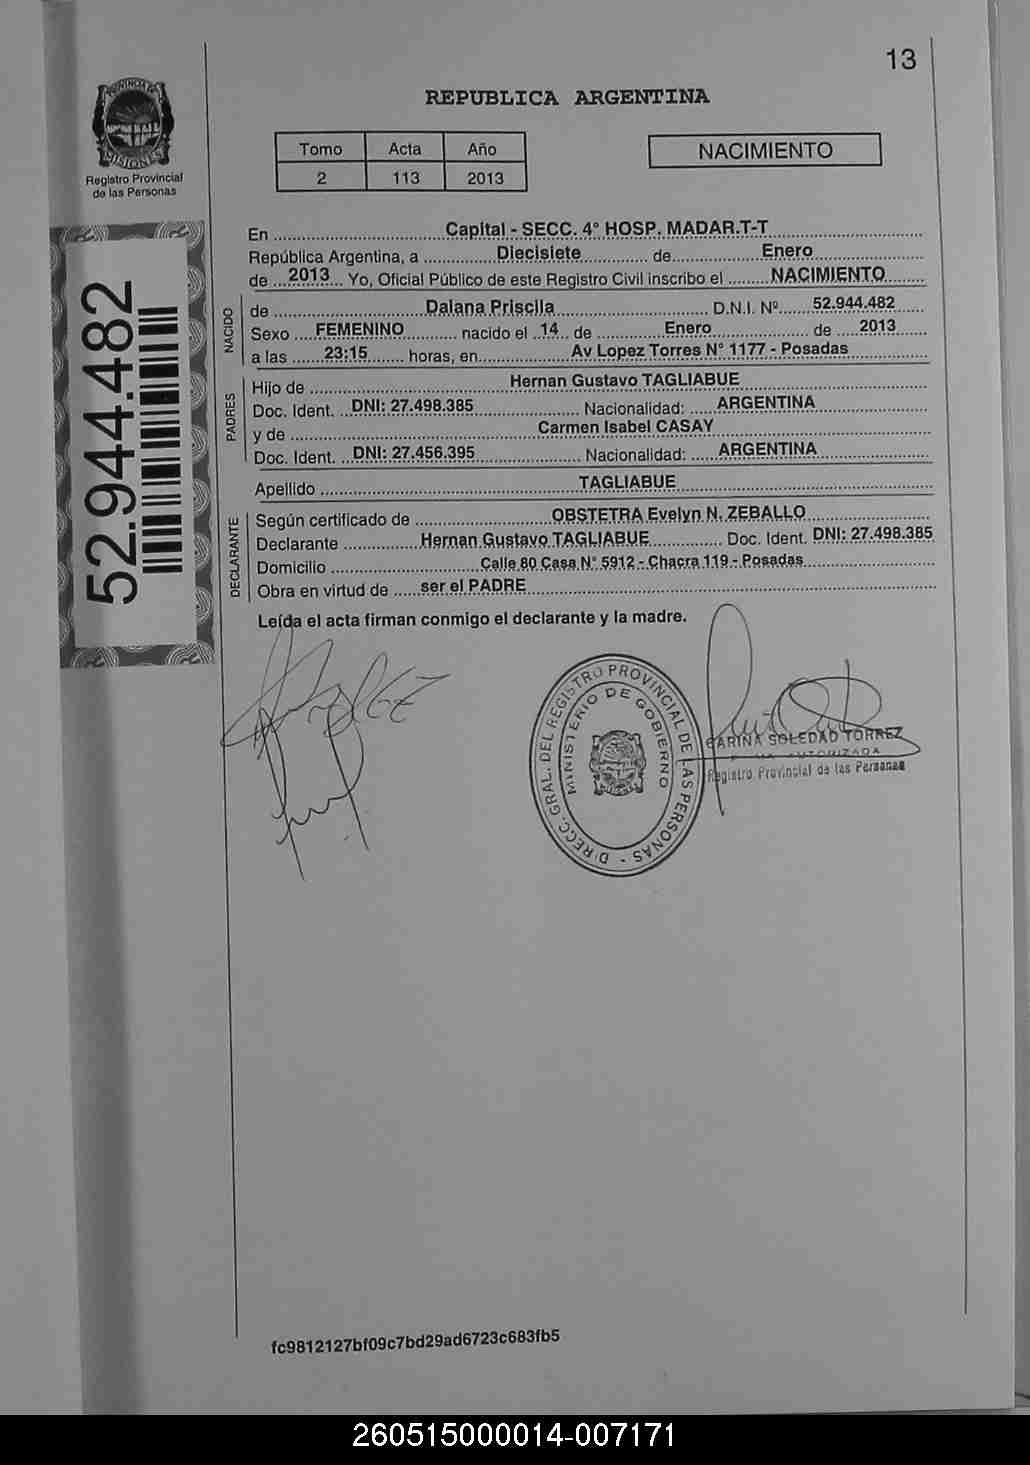 13
REPUBLICA ARGENTINA
PROVINCIA DE
MISIONES
Registro Provincial
de las Personas
Tomo Acta Año
2 113 2013
NACIMIENTO
52.944.482
En Capital - SECC. 4° HOSP. MADAR.T-T
República Argentina, a Diecisiete de Enero
de 2013 Yo, Oficial Público de este Registro Civil inscribo el NACIMIENTO
NACIDO
de Daiana Priscila D.N.I. Nº 52.944.482
Sexo FEMENINO nacido el 14 de Enero de 2013
a las 23:15 horas, en Av Lopez Torres N° 1177 - Posadas
PADRES
Hijo de Hernan Gustavo TAGLIABUE
Doc. Ident. DNI: 27.498.385 Nacionalidad: ARGENTINA
y de Carmen Isabel CASAY
Doc. Ident. DNI: 27.456.395 Nacionalidad: ARGENTINA
Apellido TAGLIABUE
DECLARANTE
Según certificado de OBSTETRA Evelyn N. ZEBALLO
Declarante Hernan Gustavo TAGLIABUE Doc. Ident. DNI: 27.498.385
Domicilio Calle 80 Casa N° 5912 - Chacra 119 - Posadas
Obra en virtud de ser el PADRE
Leída el acta firman conmigo el declarante y la madre.
DIRECC. GRAL. DEL REGISTRO PROVINCIAL DE LAS PERSONAS -
MINISTERIO DE GOBIERNO
CARINA SOLEDAD TORREZ
AUTORIZADA
Registro Provincial de las Personas
fc9812127bf09c7bd29ad6723c683fb5
260515000014-007171